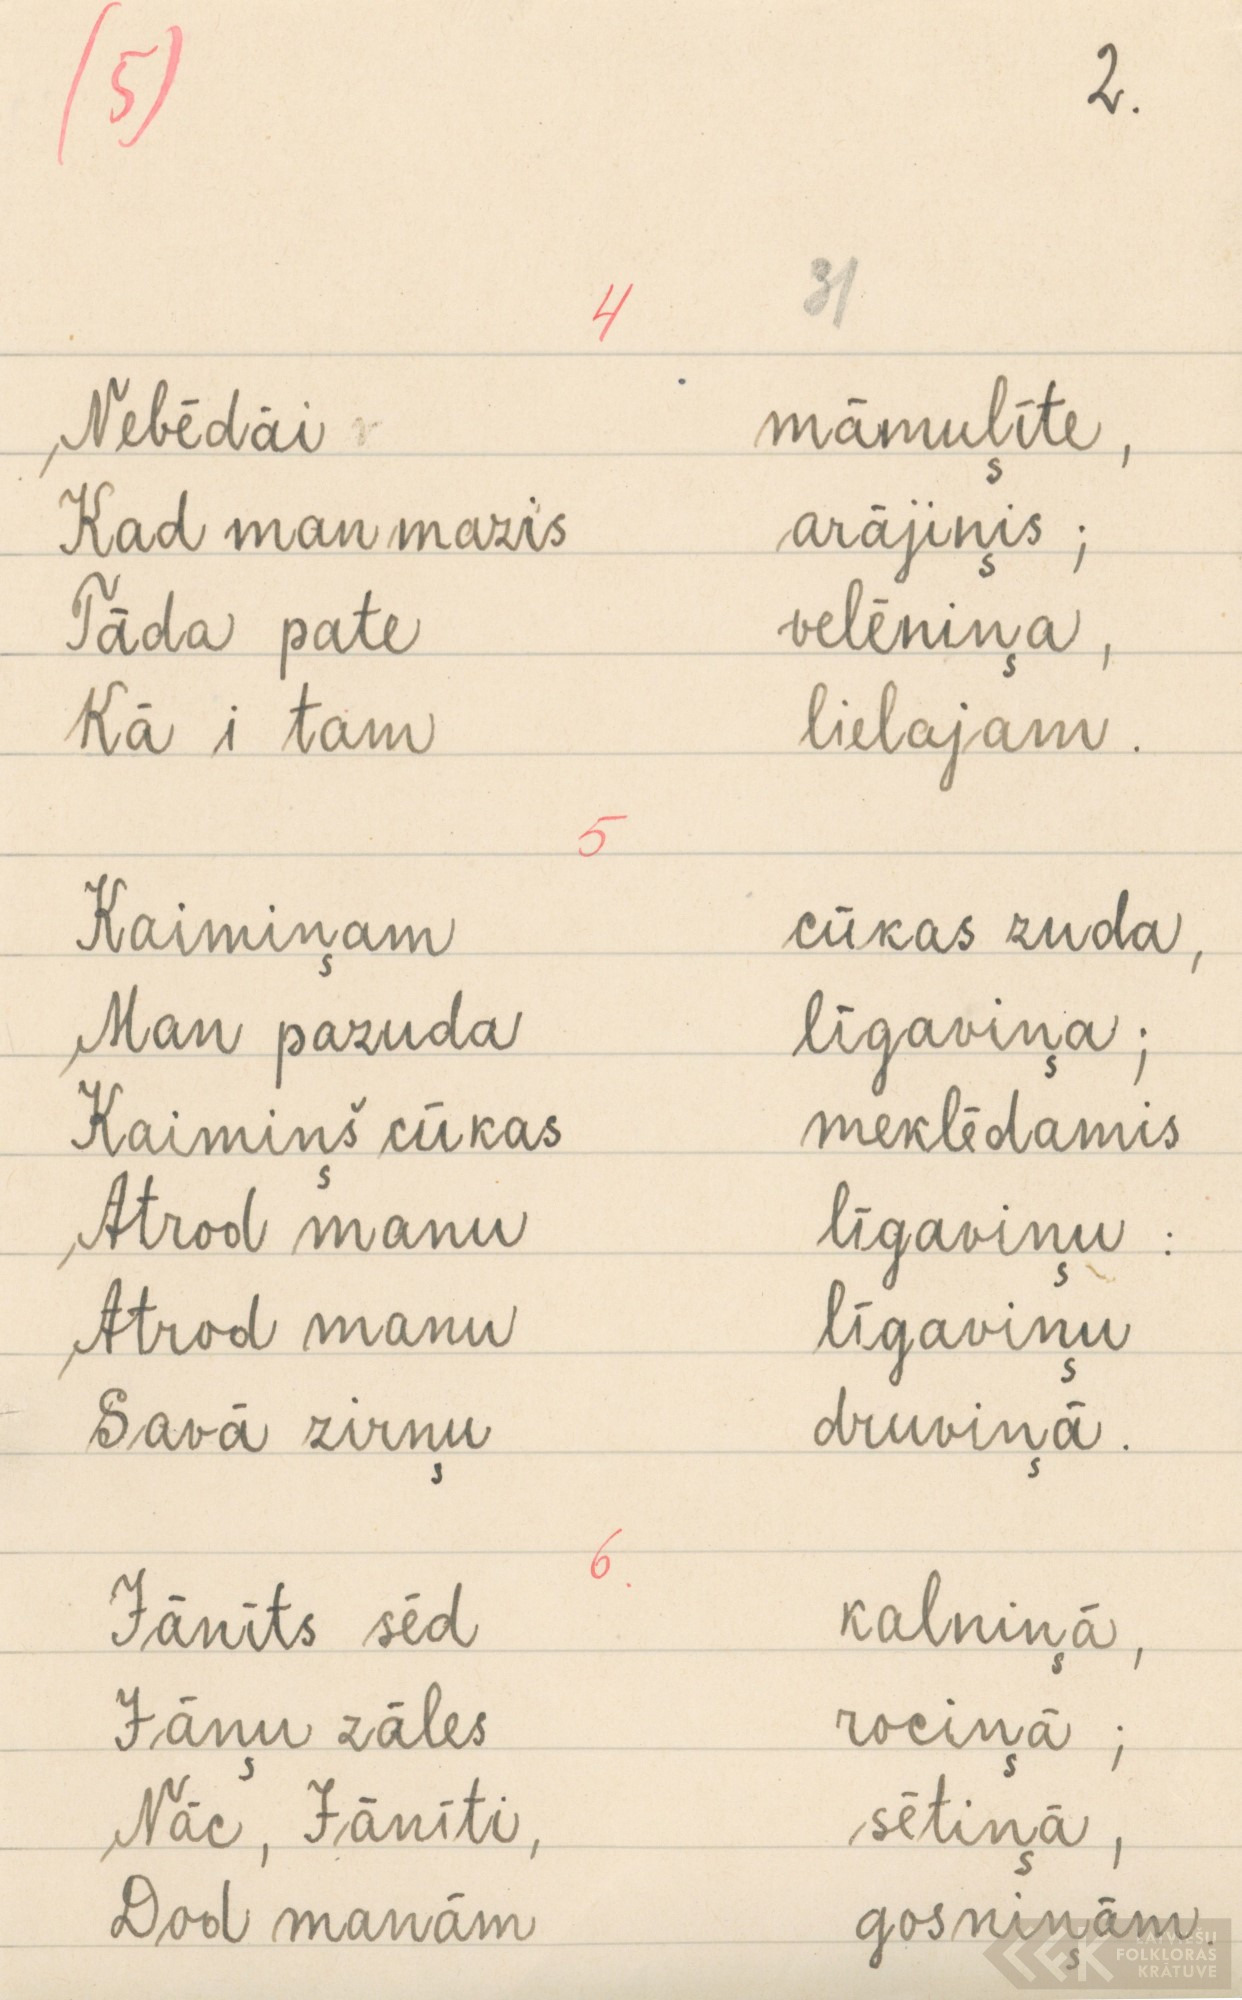 (5) 2.
4 31
Nebēdāi māmuļīte,
Kad man mazis arājiņis;
Tāda pate velēniņa,
Kā i tam lielajam.
5
Kaimiņam cūkas zuda,
Man pazuda līgaviņa;
Kaimiņš cūkas meklēdamis
Atrod manu līgaviņu:
Atrod manu līgaviņu
Savā zirņu druviņā.
6.
Jānīts sēd kalniņā,
Jāņu zāles rociņā;
Nāc, Jānīti, sētiņā,
Dod manām gosniņām.
LATVIEŠU
FOLKLORAS
KRĀTUVE